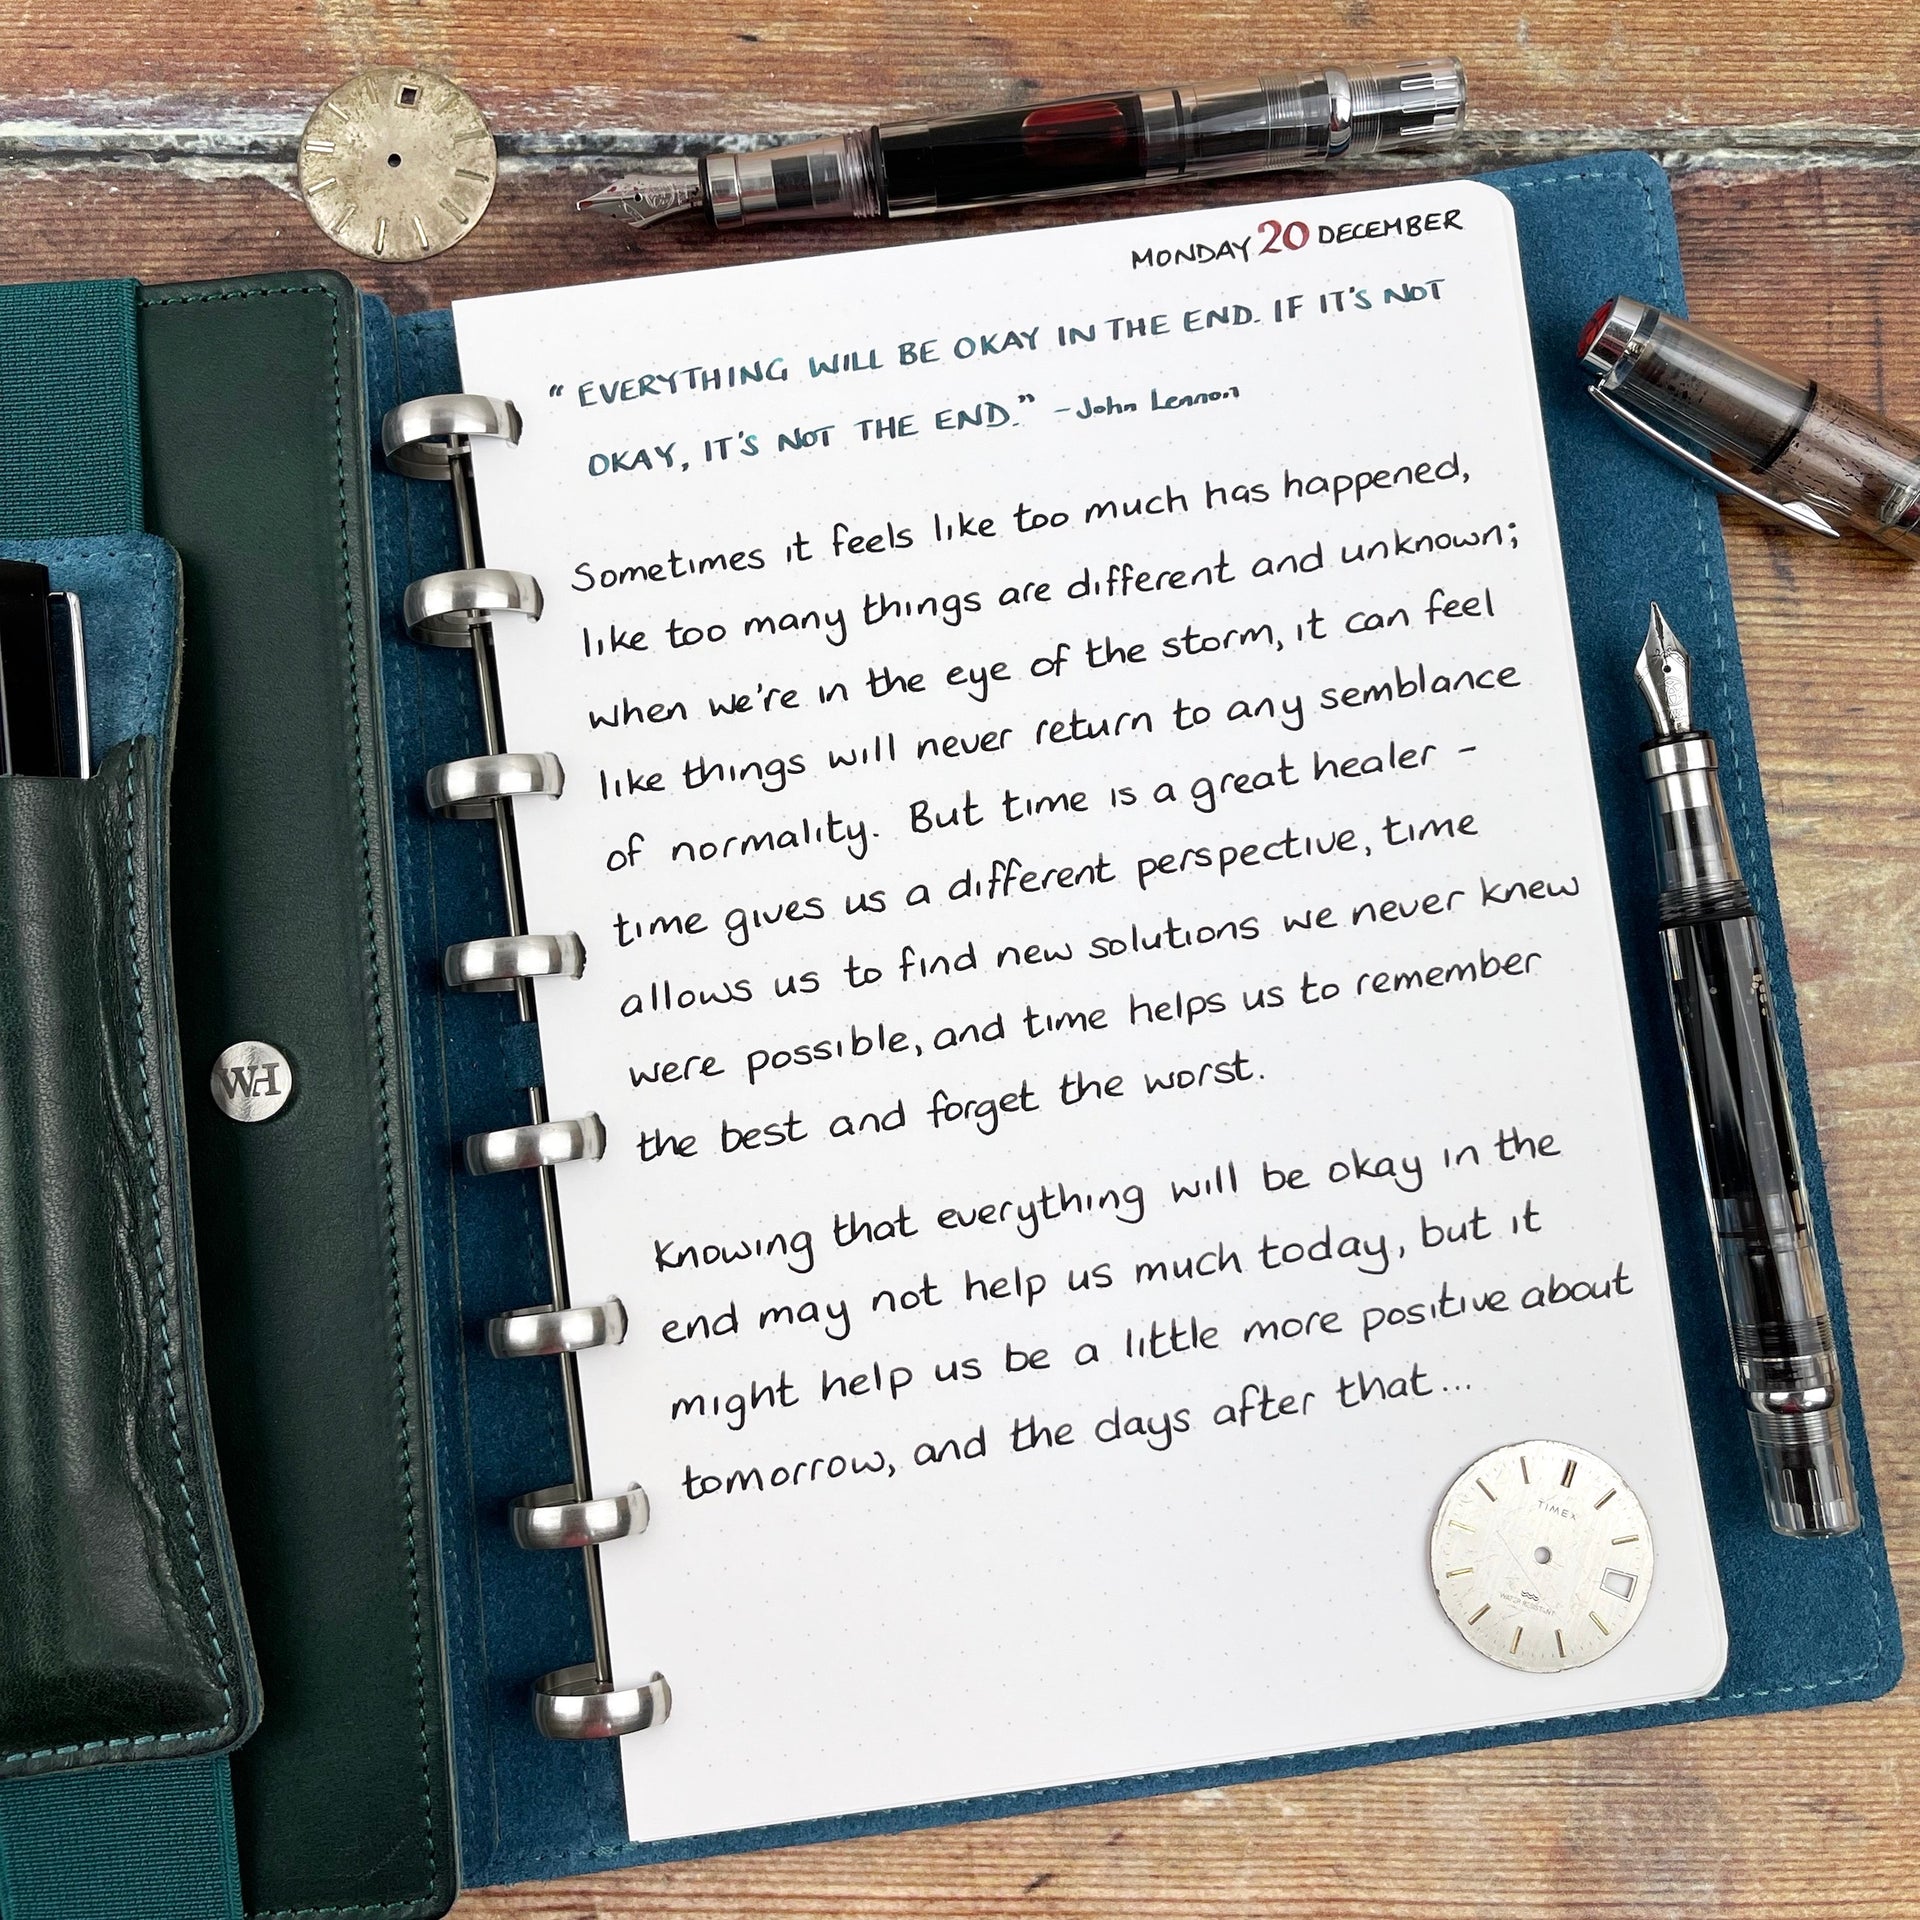 MONDAY 20 DECEMBER
“EVERYTHING WILL BE OKAY IN THE END. IF IT'S NOT
OKAY, IT'S NOT THE END.” - John Lennon
Sometimes it feels like too much has happened,
like too many things are different and unknown;
when we're in the eye of the storm, it can feel
like things will never return to any semblance
of normality. But time is a great healer -
time gives us a different perspective, time
allows us to find new solutions we never knew
were possible, and time helps us to remember
the best and forget the worst.
Knowing that everything will be okay in the
end may not help us much today, but it
might help us be a little more positive about
tomorrow, and the days after that...
WH
TIMEX
WATER RESISTANT